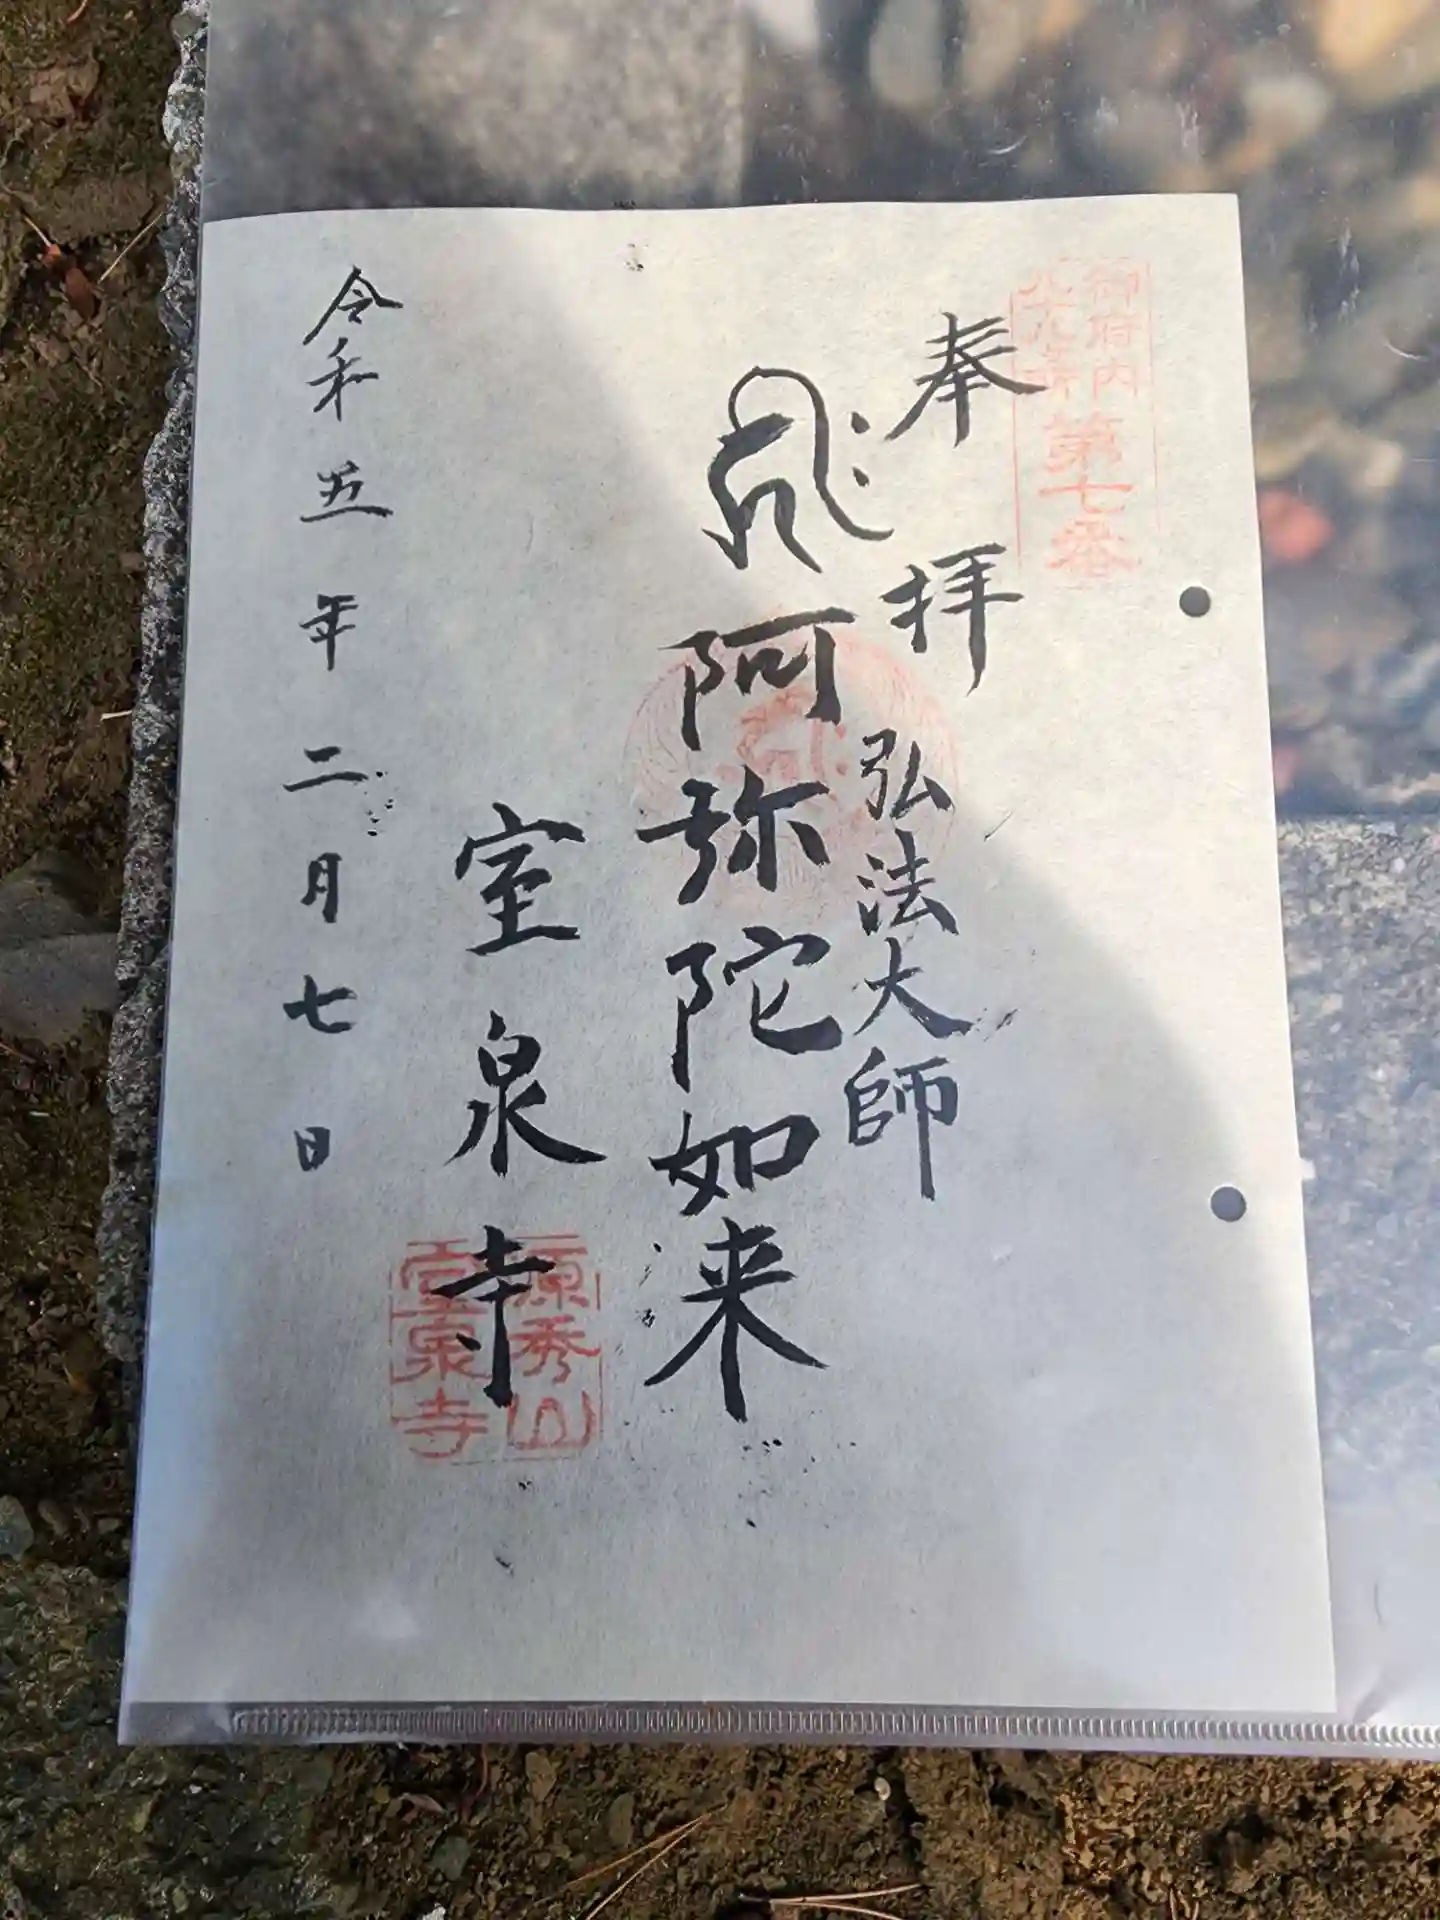 御府内
八十八ケ所
第七番
奉拝
弘法大師
阿弥陀如来
室泉寺
源秀山
室泉寺
令和五年二月七日